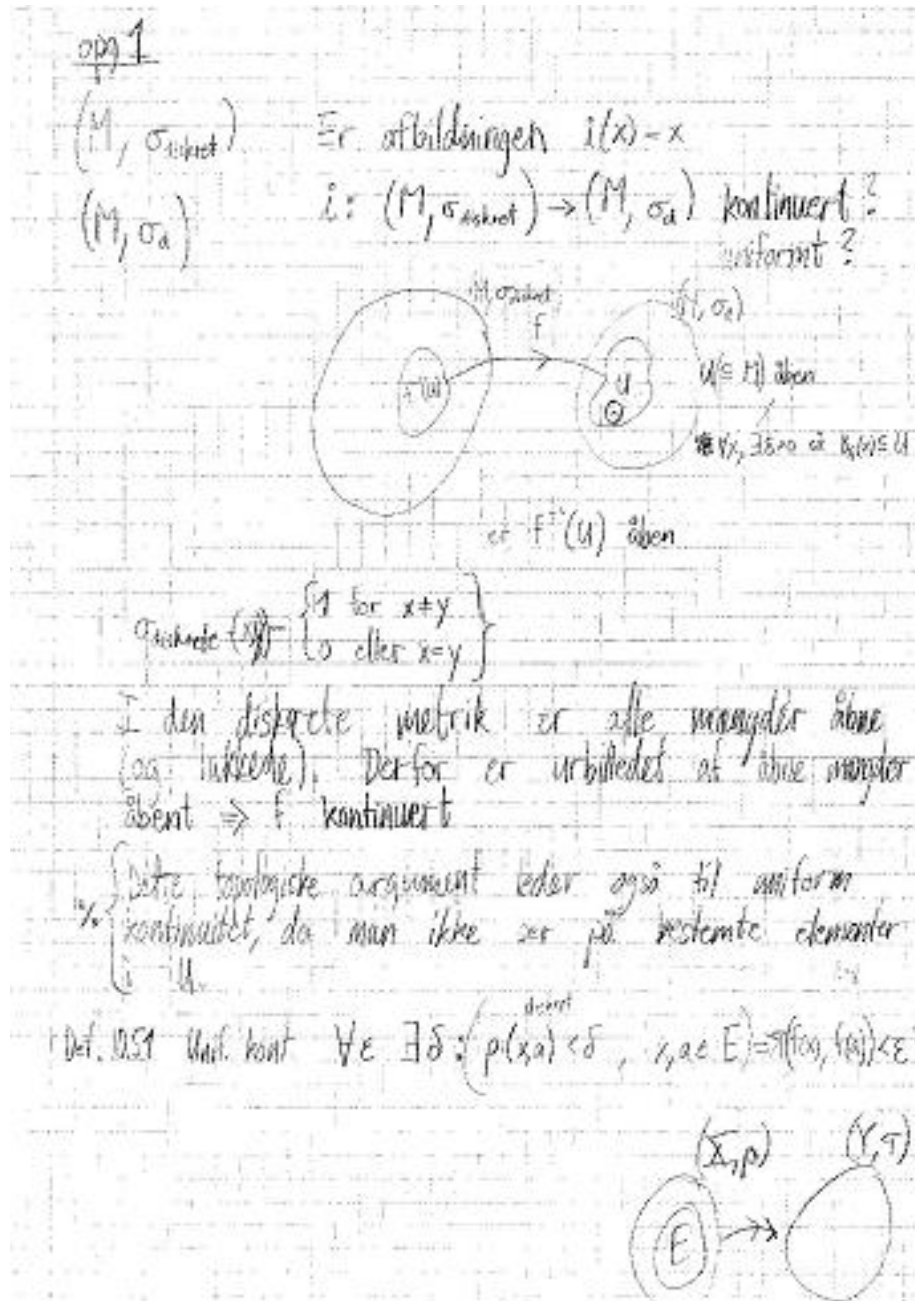 opg 1
(M, σ_diskret) Er afbildningen i(x) = x
(M, σ_d) i: (M, σ_diskret) → (M, σ_d) kontinuert?
uniformt?
M, σ_diskret (M, σ_d)
f
f⁻¹(U) U U(⊆ M) åben
∀x, ∃δ>0 så B_δ(x) ⊆ U
er f⁻¹(U) åben
σ_diskrete (x,y) = {1 for x≠y
0 eller x=y}
I den diskrete metrik er alle mængder åbne
(og lukkede). Derfor er urbilledet af åbne mængder
åbent ⇒ f kontinuert
Dette topologiske argument leder også til uniform
kontinuitet, da man ikke ser på bestemte elementer
i U.
Def. 10.51 Unif. kont ∀ε ∃δ : (ρ(x,a) < δ, x,a ∈ E) ⇒ τ(f(x), f(a)) < ε
diskret
(X, ρ) (Y, τ)
E